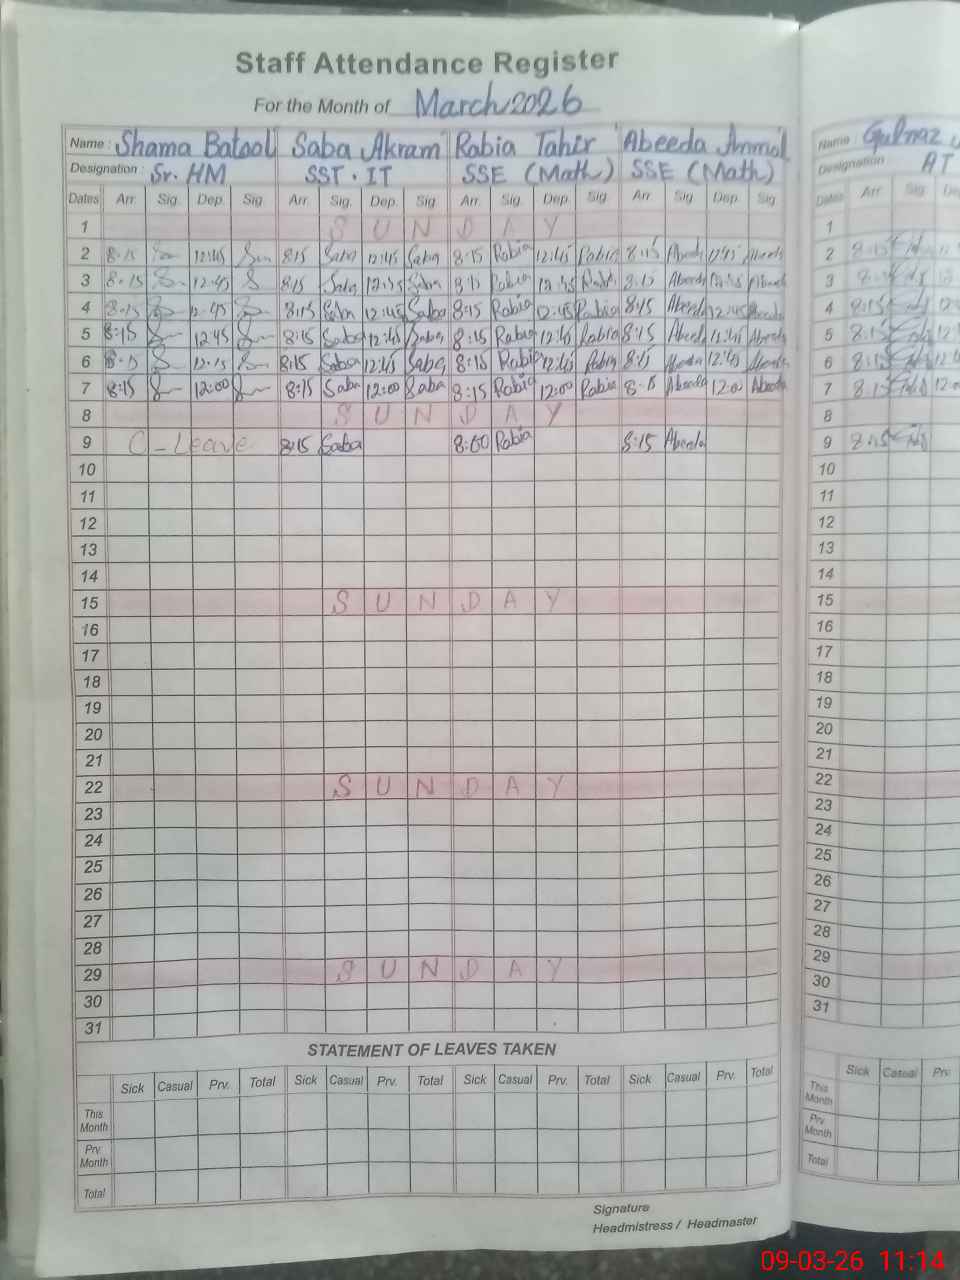 Staff Attendance Register
For the Month of March 2026
Name : Shama Batool Saba Akram Rabia Tahir Abeeda Anmol
Designation : Sr. HM SST . IT SSE (Math) SSE (Math)
Dates Arr. Sig. Dep. Sig. Arr. Sig. Dep. Sig. Arr. Sig. Dep. Sig. Arr. Sig. Dep. Sig.
1 S U N D A Y
2 8:15 12:45 8:15 Saba 12:45 Saba 8:15 Rabia 12:45 Rabia 8:15 Abeeda 12:45 Abeeda
3 8:15 12:45 8:15 Saba 12:45 Saba 8:15 Rabia 12:45 Rabia 8:15 Abeeda 12:45 Abeeda
4 8:15 12:45 8:15 Saba 12:45 Saba 8:15 Rabia 12:45 Rabia 8:15 Abeeda 12:45 Abeeda
5 8:15 12:45 8:15 Saba 12:45 Saba 8:15 Rabia 12:45 Rabia 8:15 Abeeda 12:45 Abeeda
6 8:15 12:15 8:15 Saba 12:45 Saba 8:15 Rabia 12:45 Rabia 8:15 Abeeda 12:45 Abeeda
7 8:15 12:00 8:15 Saba 12:00 Saba 8:15 Rabia 12:00 Rabia 8:15 Abeeda 12:00 Abeeda
8 S U N D A Y
9 C-Leave 8:15 Saba 8:00 Rabia 8:15 Abeeda
10
11
12
13
14
15 S U N D A Y
16
17
18
19
20
21
22 S U N D A Y
23
24
25
26
27
28
29 S U N D A Y
30
31
STATEMENT OF LEAVES TAKEN
Sick Casual Prv. Total Sick Casual Prv. Total Sick Casual Prv. Total Sick Casual Prv. Total
This Month
Prv. Month
Total
Signature
Headmistress / Headmaster
Name Gulnaz
Designation AT
Dates Arr. Sig.
1
2 8:15
3
4 8:15
5 8:15
6 8:15
7 8:15
8
9 8:15
10
11
12
13
14
15
16
17
18
19
20
21
22
23
24
25
26
27
28
29
30
31
Sick Casual Prv
This Month
Prv. Month
Total
09-03-26 11:14